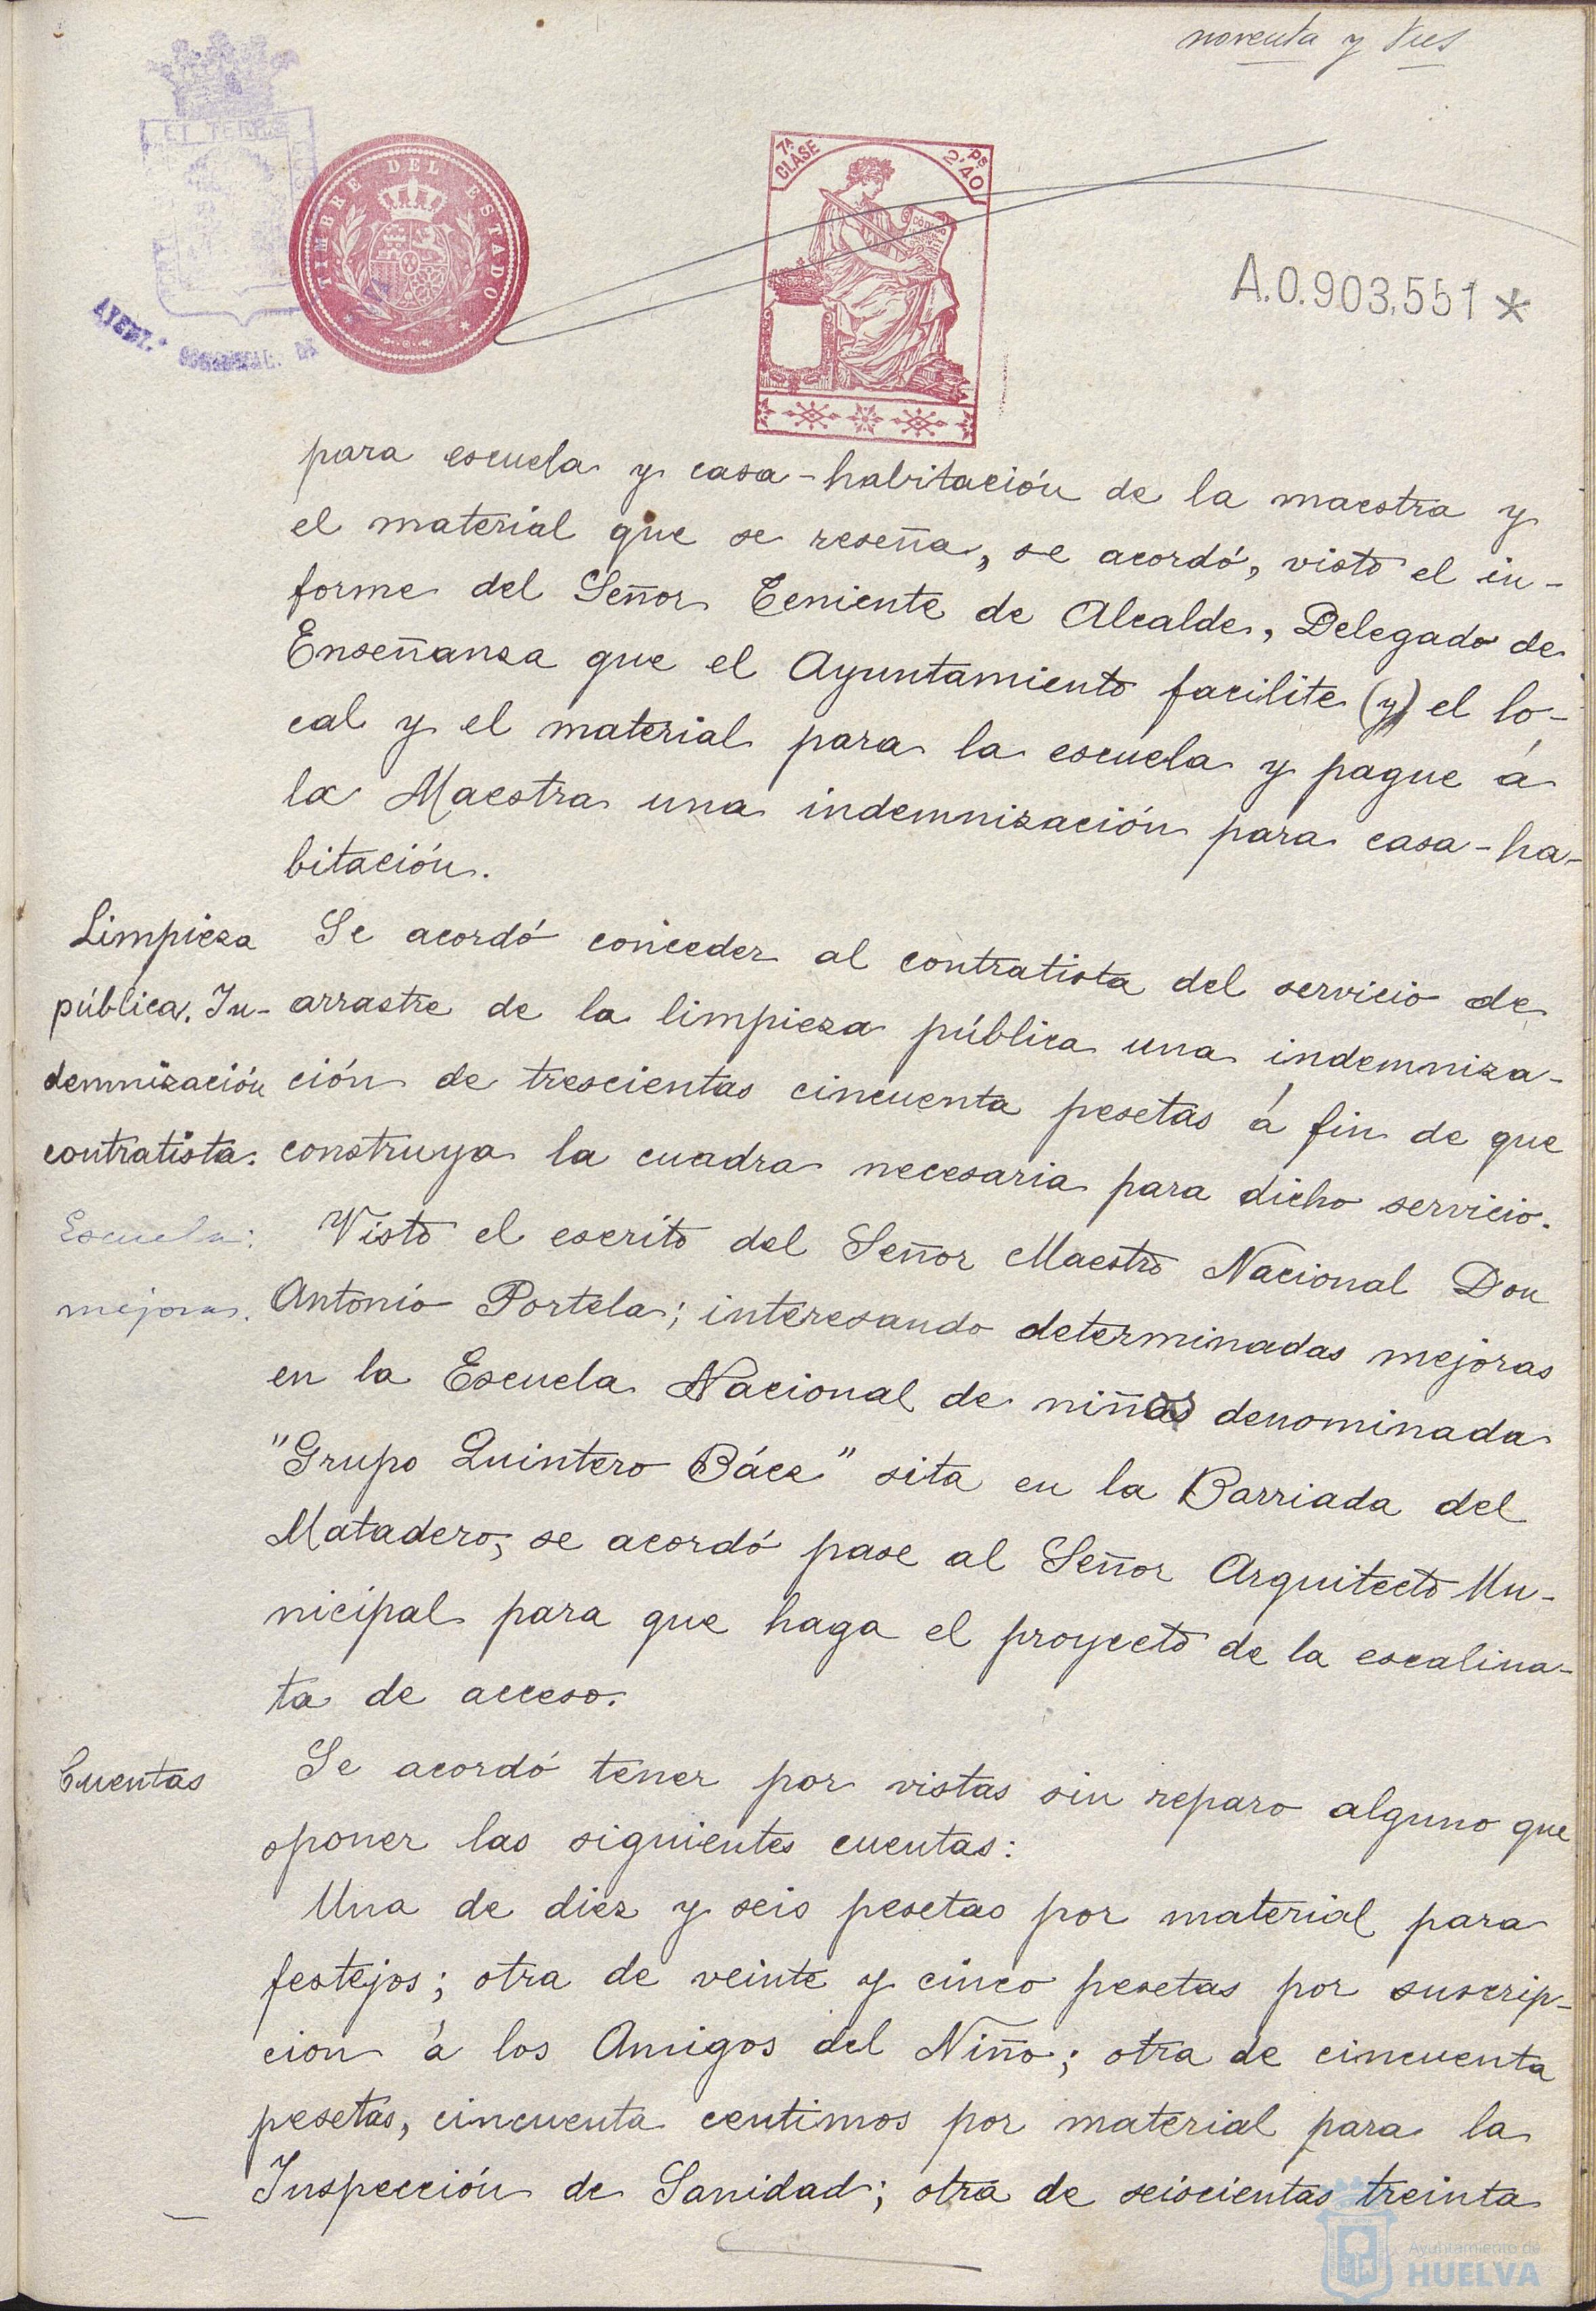 noventa y tres
TIMBRE DEL ESTADO
7ª CLASE
Ps 2'40
A.0.903,551 *
para escuela y casa-habitación de la maestra y
el material que se reseña, se acordó, visto el in-
forme del Señor Teniente de Alcalde, Delegado de
Enseñanza que el Ayuntamiento facilite (y) el lo-
cal y el material para la escuela y pague á
la Maestra una indemnización para casa-ha-
bitación.
Limpieza
pública. In-
demnización
contratista.
Se acordó conceder al contratista del servicio de
arrastre de la limpieza pública una indemniza-
ción de trescientas cincuenta pesetas á fin de que
construya la cuadra necesaria para dicho servicio.
Escuela:
mejoras.
Visto el escrito del Señor Maestro Nacional Don
Antonio Portela; interesando determinadas mejoras
en la Escuela Nacional de niños denominada
"Grupo Quintero Báez" sita en la Barriada del
Matadero, se acordó pase al Señor Arquitecto Mu-
nicipal para que haga el proyecto de la escalina-
ta de acceso.
Cuentas
Se acordó tener por vistas sin reparo alguno que
oponer las siguientes cuentas:
Una de diez y seis pesetas por material para
festejos; otra de veinte y cinco pesetas por suscrip-
cion á los Amigos del Niño; otra de cincuenta
pesetas, cincuenta centimos por material para la
Inspección de Sanidad; otra de seiscientas treinta
Ayuntamiento de
HUELVA